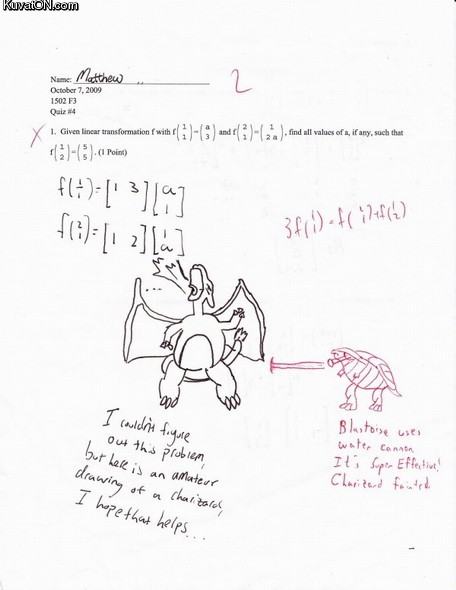 KuvatON.com
Name: Matthew
2
October 7, 2009
1502 F3
Quiz #4
X 1. Given linear transformation f with f(1 1)=(a 3) and f(2 1)=(1 2a), find all values of a, if any, such that
f(1 2)=(5 5). (1 Point)
f(1 1)=[1 3][a 1]
f(2 1)=[1 2][1 a]
3f(1 1)=f(2 1)+f(1 2)
...
I couldn't figure
out this problem,
but here is an amateur
drawing of a charizard,
I hope that helps...
Blastoise uses
water cannon
It's Super Effective!
Charizard fainted